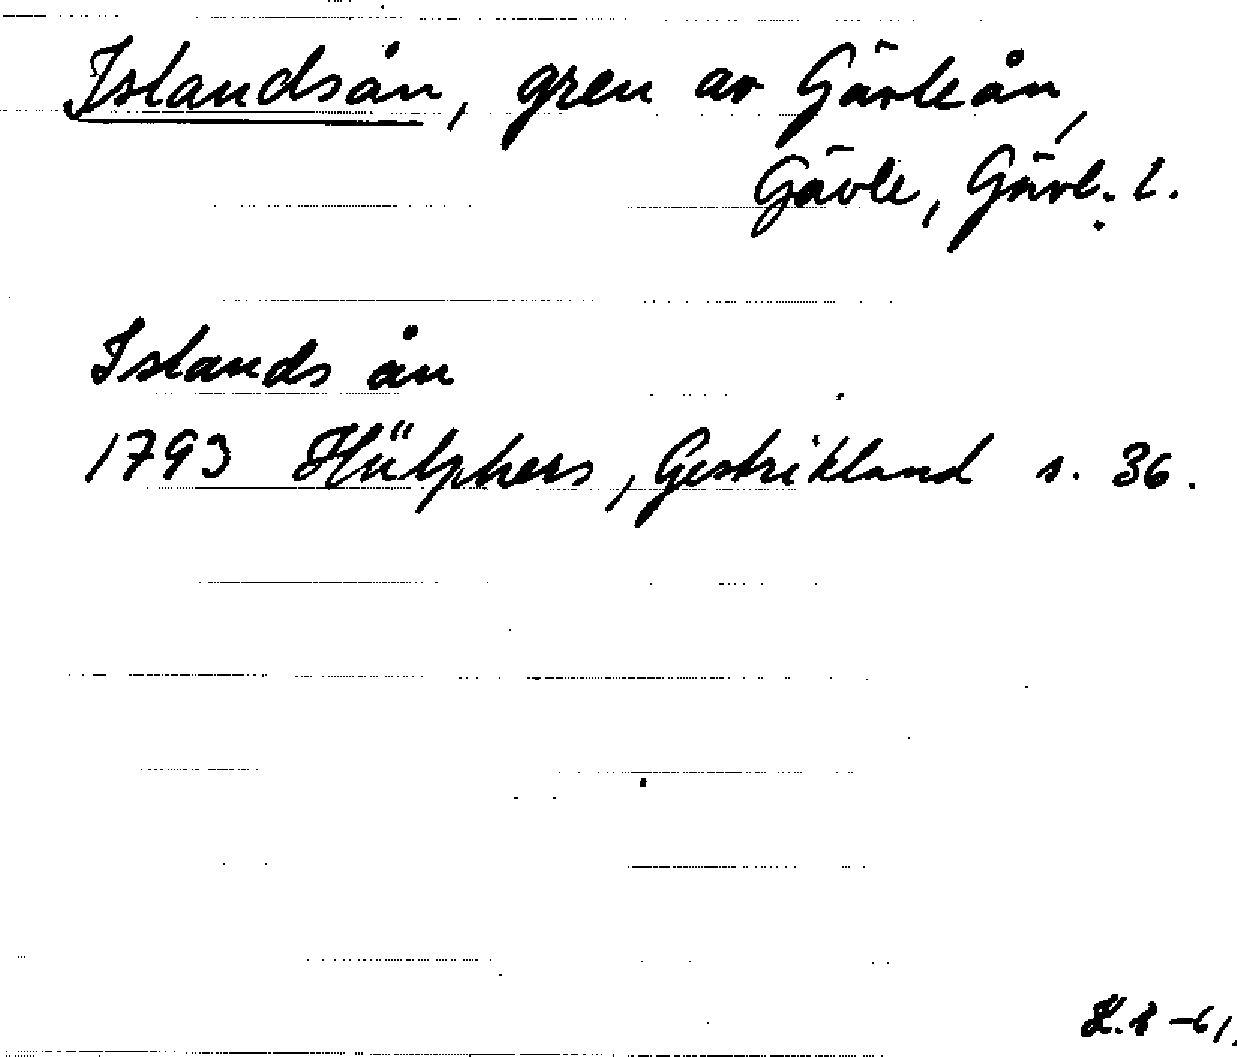 Islandsån, gren av Gävleån,
Gävle, Gävl. l.
Islands ån
1793 Hülphers, Gestrikland s. 36.